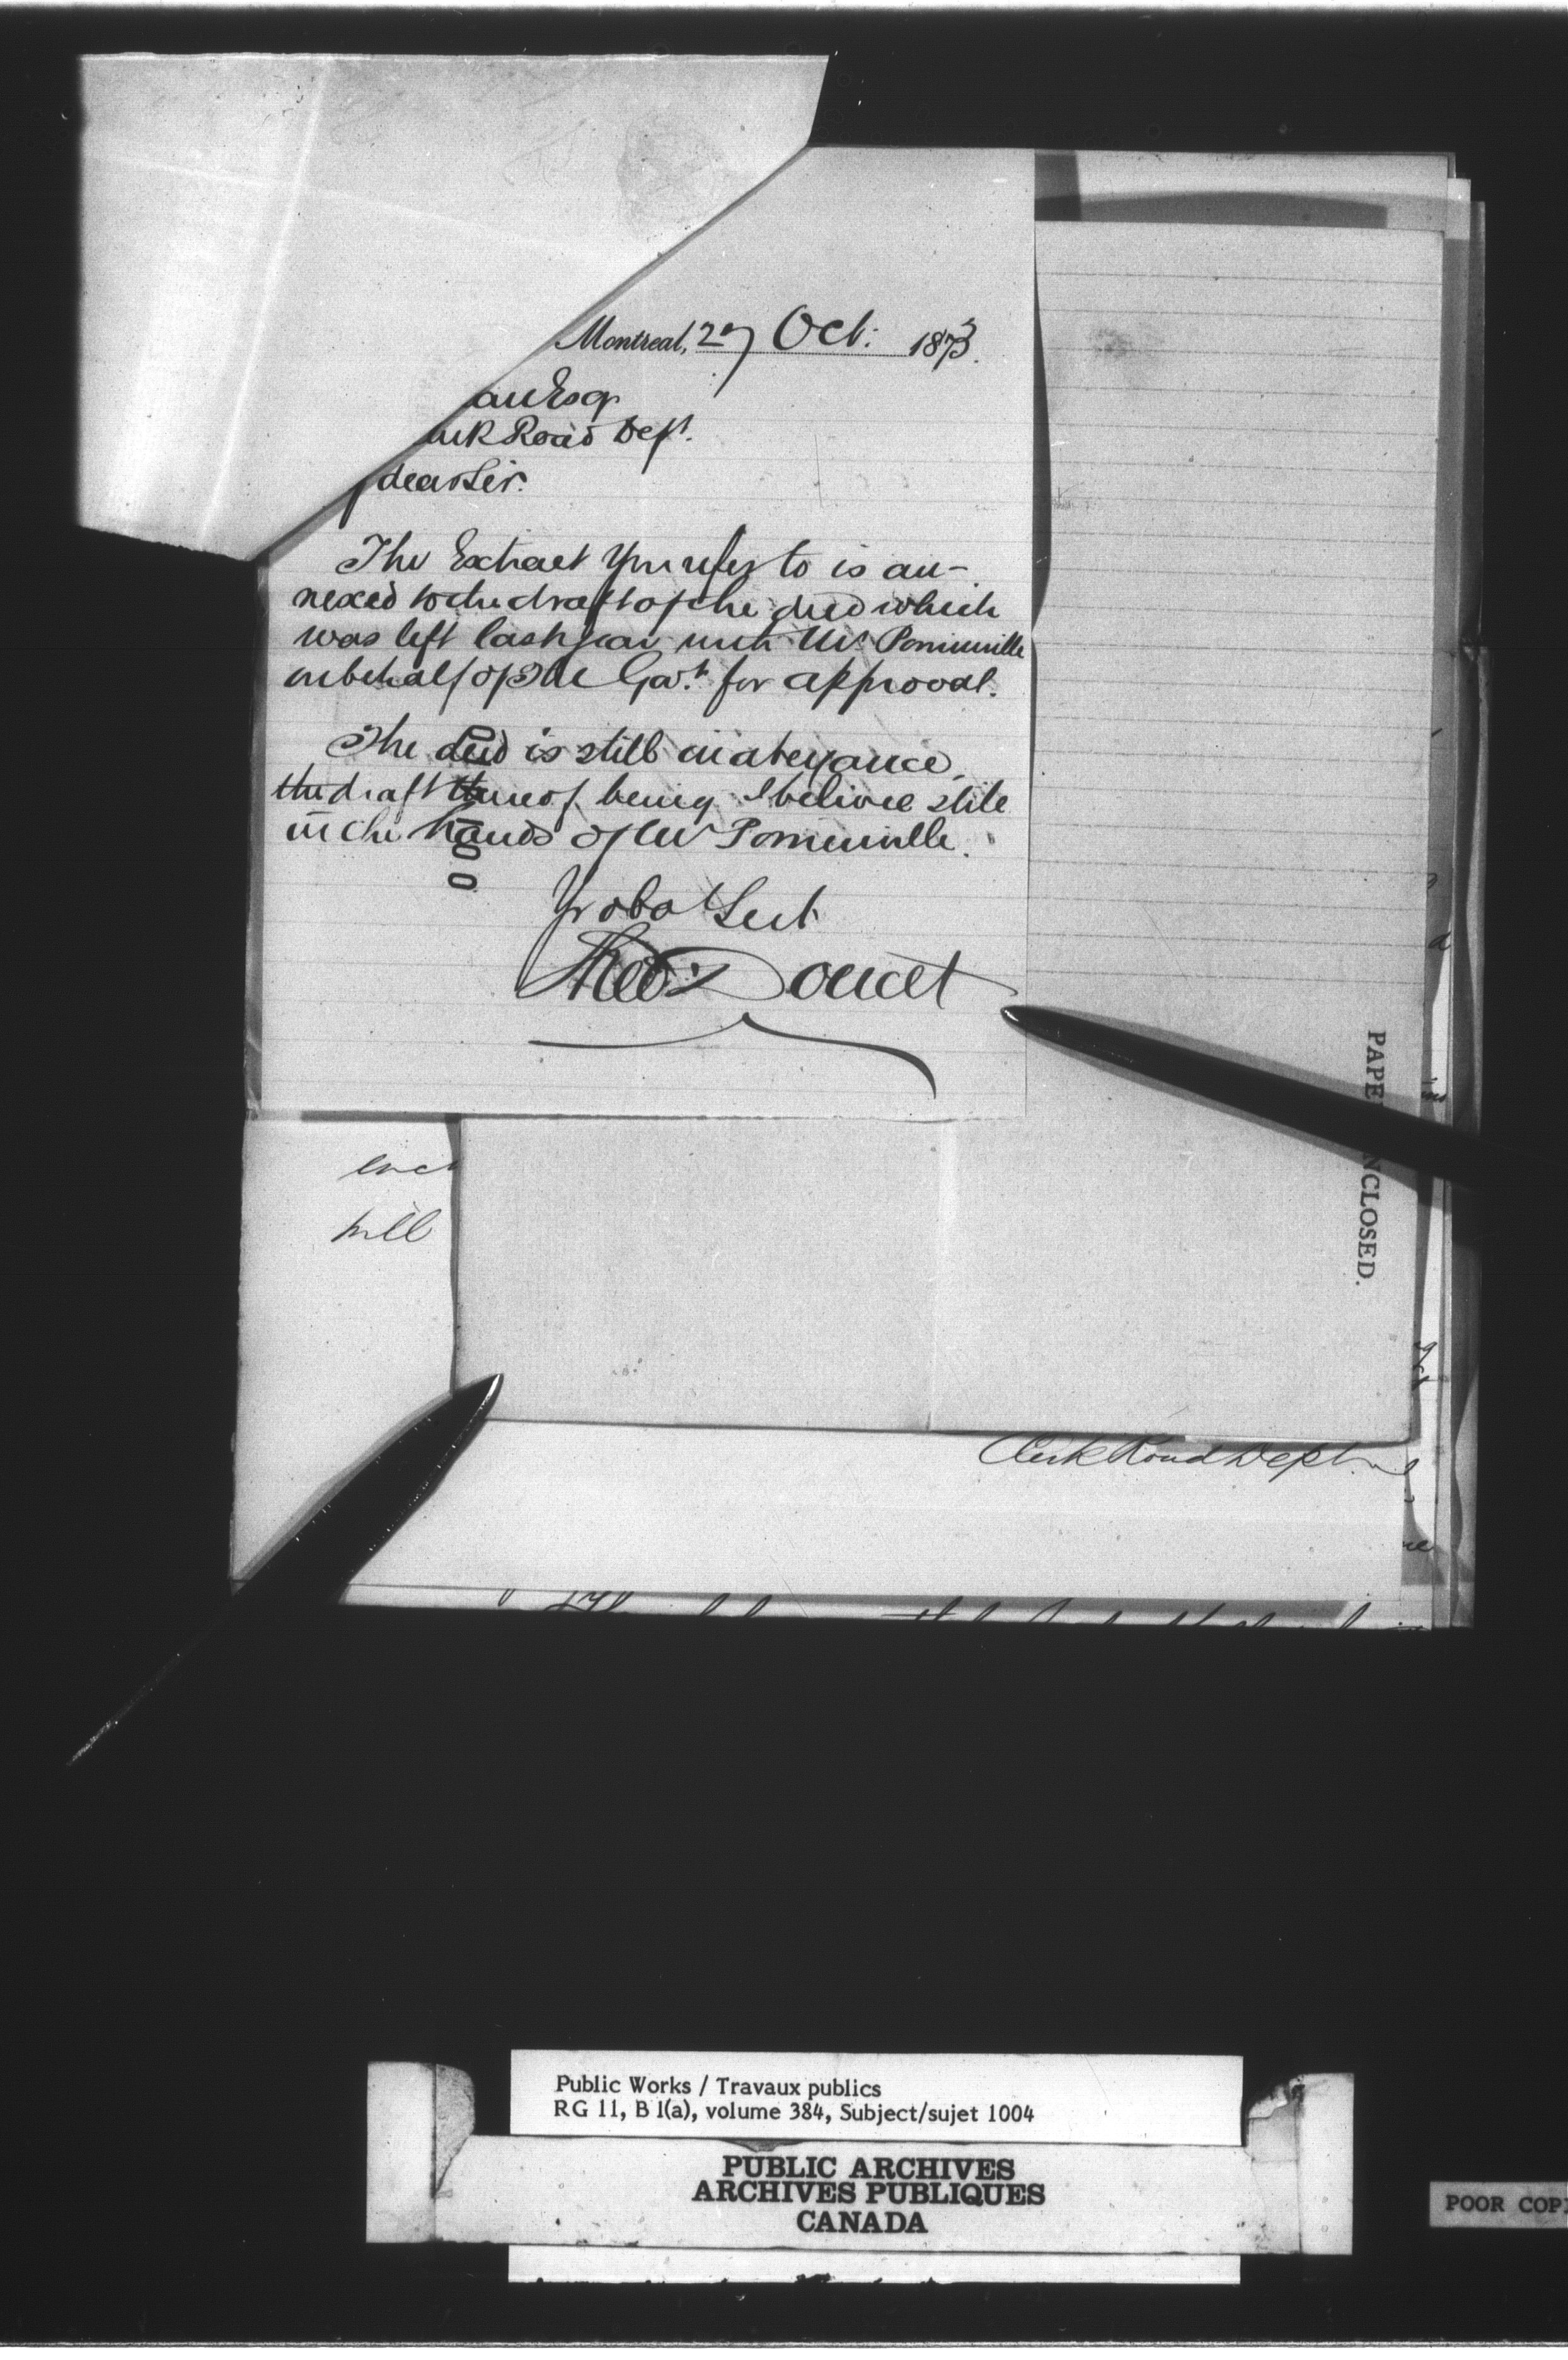 Montreal, 27 Oct: 1873.
au Esq
erk Road Dept.
dear Sir.
The Extract you refer to is an-
nexed to the draft of the deed which
was left last year with Mr. Pominville
on behalf of the Govt. for approval.
The deed is still in abeyance,
the draft thereof being I believe still
in the hands of Mr Pominville.
Yr obdt Servt
Theo: Doucet
PAPE NCLOSED.
encl
till
Clerk Road Dept
Public Works / Travaux publics
RG 11, B 1(a), volume 384, Subject/sujet 1004
PUBLIC ARCHIVES
ARCHIVES PUBLIQUES
CANADA
POOR COP